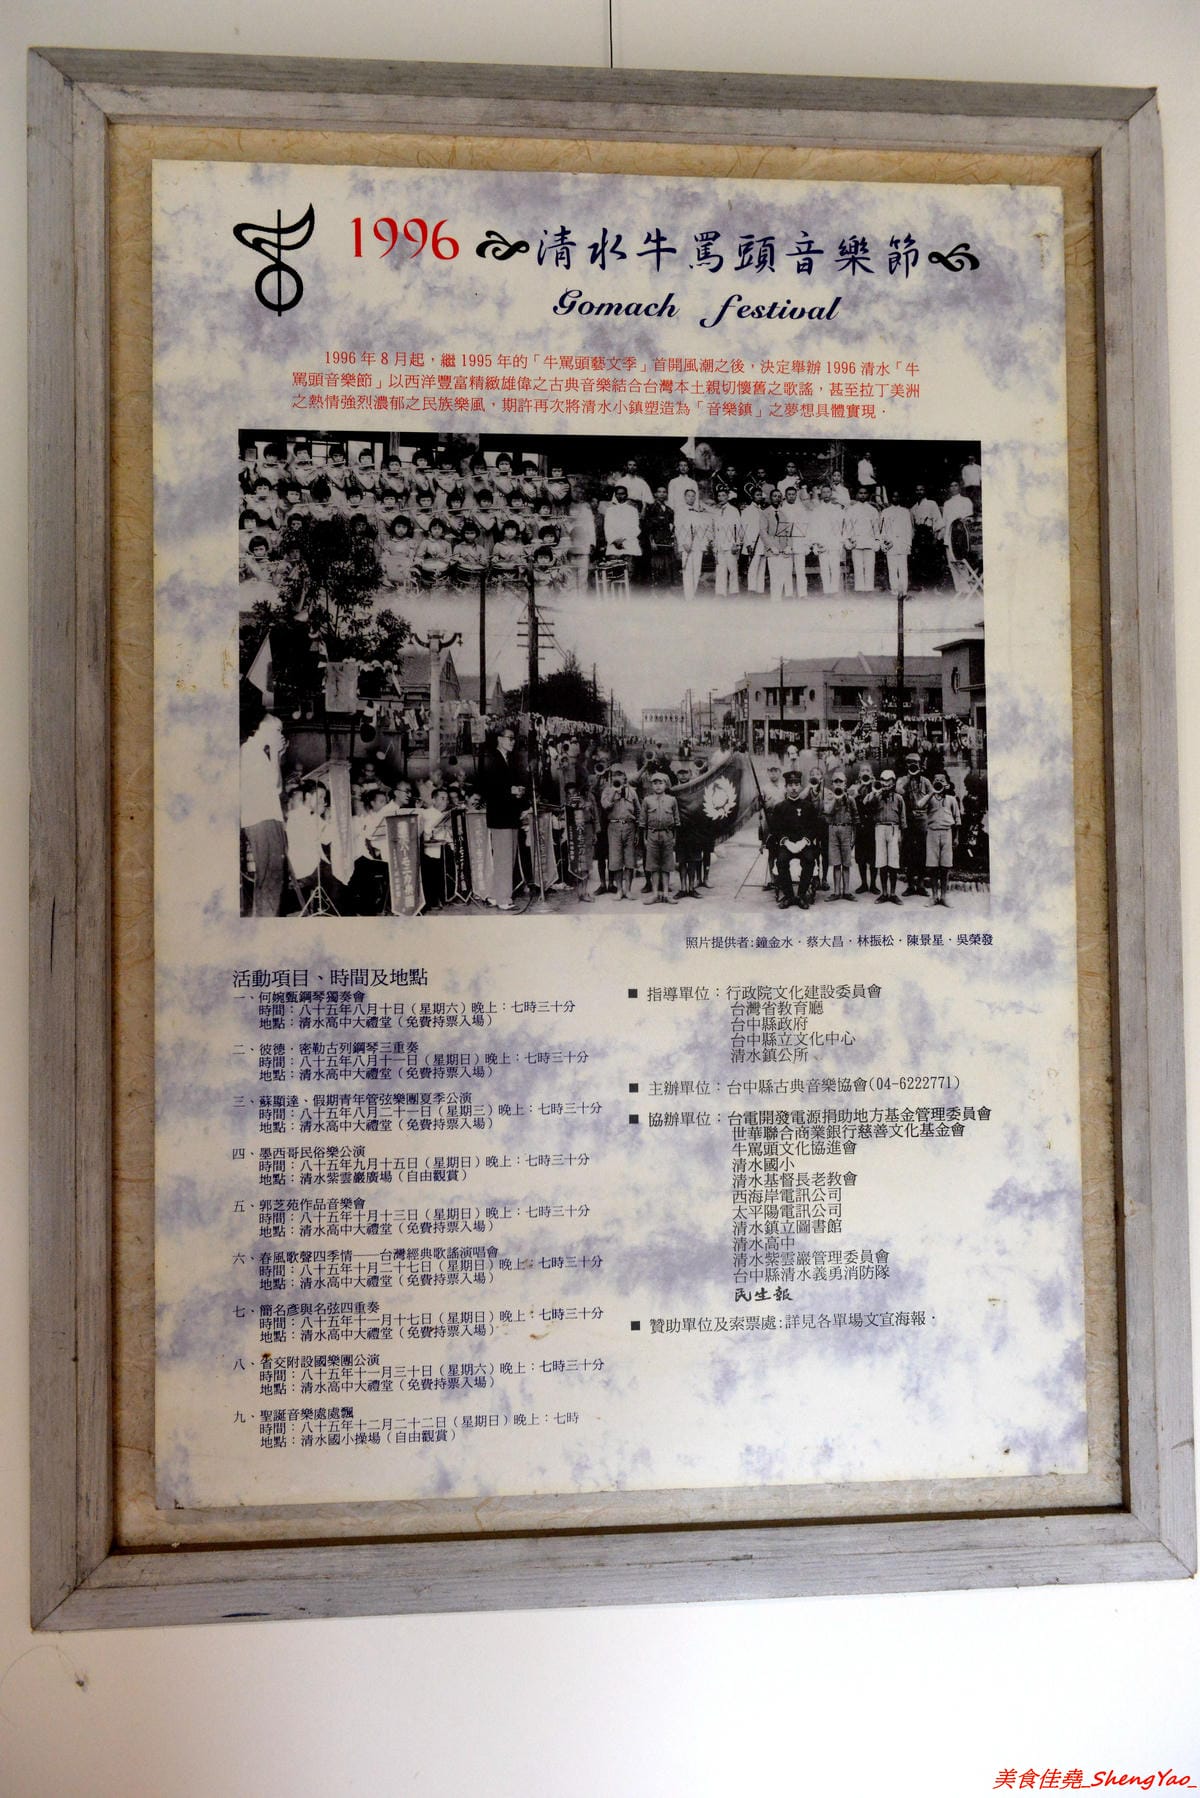 1996 清水牛罵頭音樂節
Gomach festival
1996 年 8 月起，繼 1995 年的「牛罵頭藝文季」首開風潮之後，決定舉辦 1996 清水「牛
罵頭音樂節」以西洋豐富精緻雄偉之古典音樂結合台灣本土親切懷舊之歌謠，甚至拉丁美洲
之熱情強烈濃郁之民族樂風，期許再次將清水小鎮塑造為「音樂鎮」之夢想具體實現．
照片提供者:鐘金水．蔡大昌．林振松．陳景星．吳榮發
活動項目、時間及地點
一、何婉甄鋼琴獨奏會
時間：八十五年八月十日（星期六）晚上：七時三十分
地點：清水高中大禮堂（免費持票入場）
二、彼德．密勒古列鋼琴三重奏
時間：八十五年八月十一日（星期日）晚上：七時三十分
地點：清水高中大禮堂（免費持票入場）
三、蘇顯達、假期青年管弦樂團夏季公演
時間：八十五年八月二十一日（星期三）晚上：七時三十分
地點：清水高中大禮堂（免費持票入場）
四、墨西哥民俗樂公演
時間：八十五年九月十五日（星期日）晚上：七時三十分
地點：清水紫雲巖廣場（自由觀賞）
五、郭芝苑作品音樂會
時間：八十五年十月十三日（星期日）晚上：七時三十分
地點：清水高中大禮堂（免費持票入場）
六、春風歌聲四季情——台灣經典歌謠演唱會
時間：八十五年十月二十七日（星期日）晚上：七時三十分
地點：清水高中大禮堂（免費持票入場）
七、簡名彥與名弦四重奏
時間：八十五年十一月十七日（星期日）晚上：七時三十分
地點：清水高中大禮堂（免費持票入場）
八、省交附設國樂團公演
時間：八十五年十一月三十日（星期六）晚上：七時三十分
地點：清水高中大禮堂（免費持票入場）
九、聖誕音樂處處飄
時間：八十五年十二月二十二日（星期日）晚上：七時
地點：清水國小操場（自由觀賞）
■ 指導單位：行政院文化建設委員會
台灣省教育廳
台中縣政府
台中縣立文化中心
清水鎮公所
■ 主辦單位：台中縣古典音樂協會(04-6222771)
■ 協辦單位：台電開發電源捐助地方基金管理委員會
世華聯合商業銀行慈善文化基金會
牛罵頭文化協進會
清水國小
清水基督長老教會
西海岸電訊公司
太平陽電訊公司
清水鎮立圖書館
清水高中
清水紫雲巖管理委員會
台中縣清水義勇消防隊
民生報
■ 贊助單位及索票處:詳見各單場文宣海報．
美食佳堯_ShengYao_